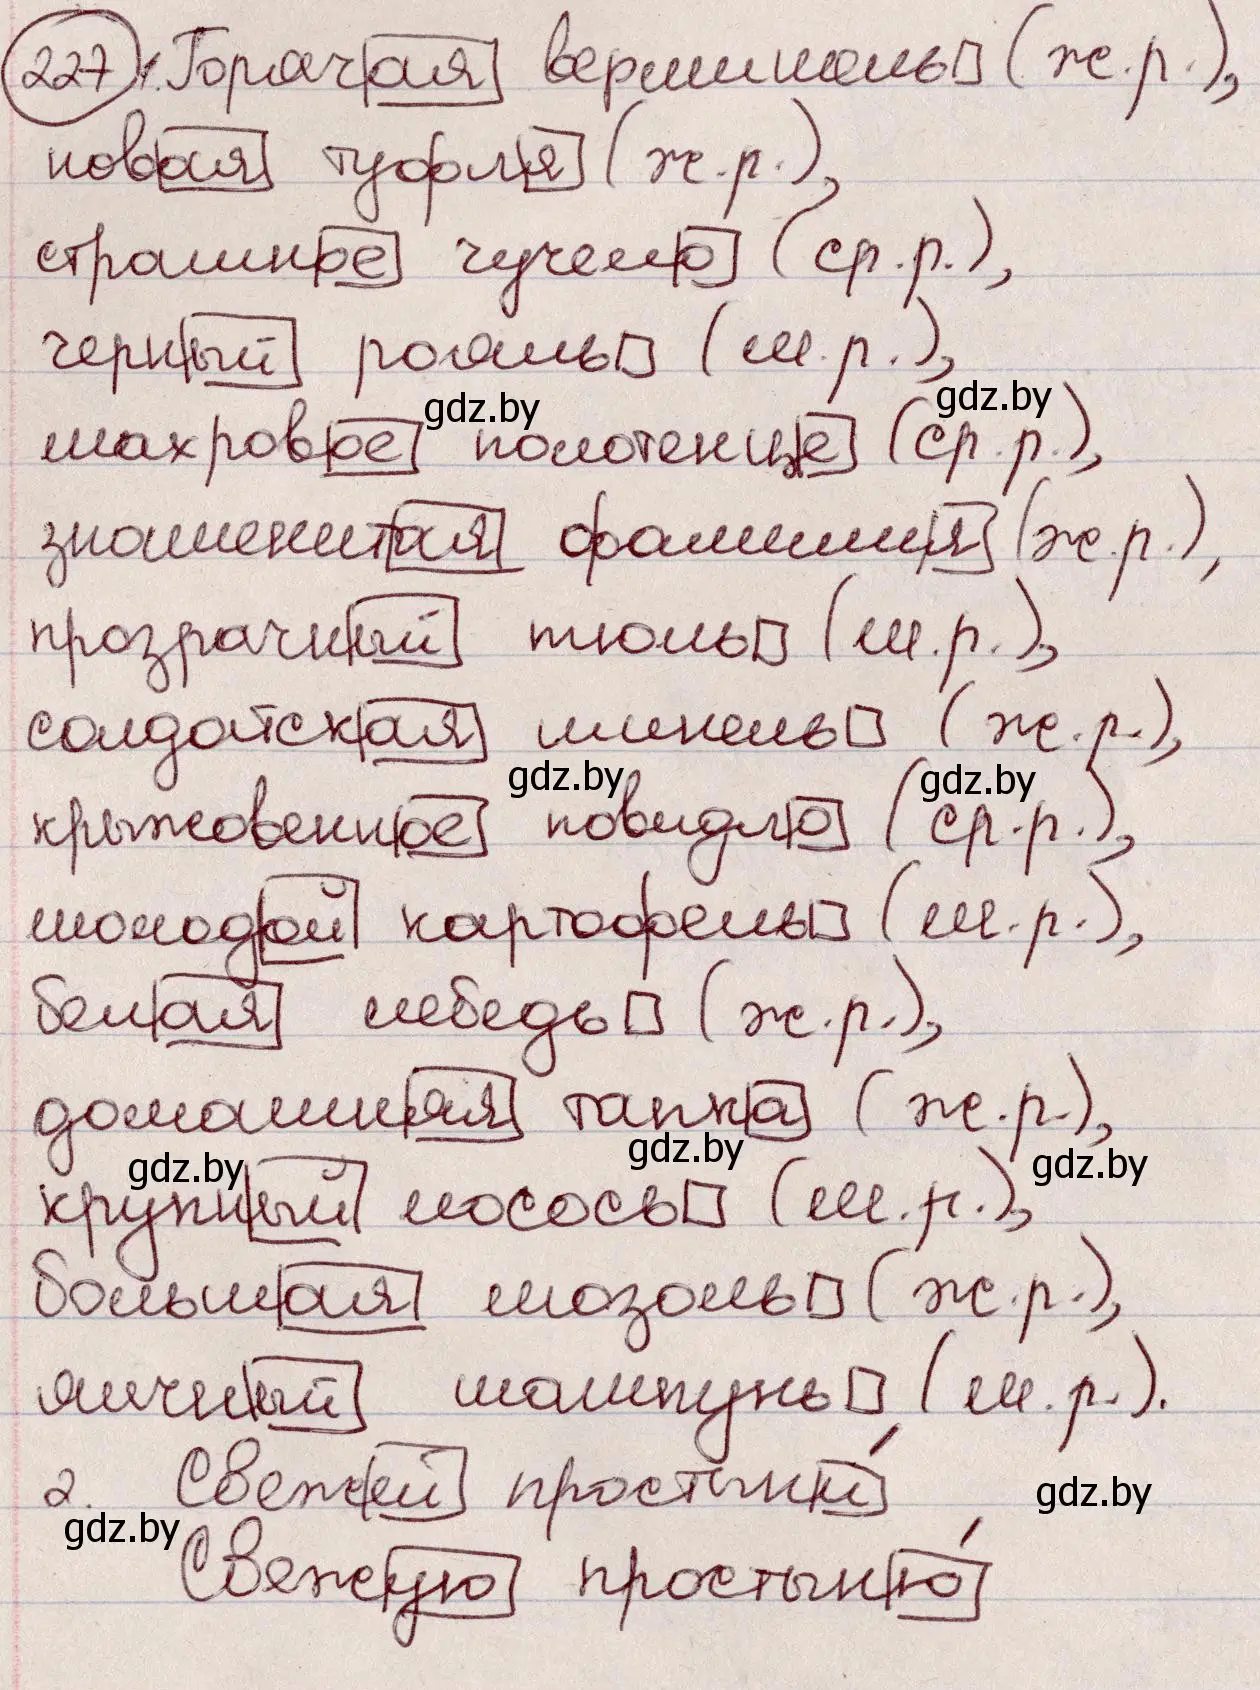 227 1. Горячая вермишель (ж.р.),
новая туфля (ж.р.),
страшное чучело (ср.р.),
черный рояль (м.р.),
gdz.by gdz.by
махровое полотенце (ср.р.),
знаменитая фамилия (ж.р.),
прозрачный тюль (м.р.),
солдатская шинель (ж.р.),
gdz.by gdz.by
крыжовенное повидло (ср.р.),
молодой картофель (м.р.),
белая лебедь (ж.р.),
домашняя тапка (ж.р.),
gdz.by gdz.by gdz.by
крупный лосось (м.р.),
большая мозоль (ж.р.),
яичный шампунь (м.р.).
2. Свежей простыни́
gdz.by gdz.by
Свежую простыню́